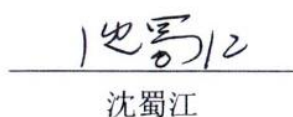 沈蜀江
沈蜀江